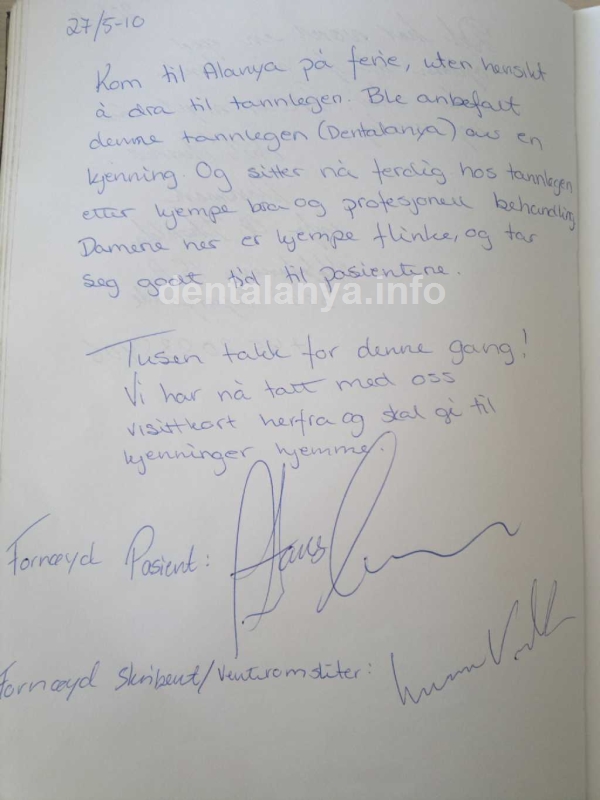 27/5-10
Kom til Alanya på ferie, uten hensikt
å dra til tannlegen. Ble anbefalt
denne tannlegen (Dentalanya) av en
kjenning. Og sitter nå ferdig hos tannlegen
etter kjempe bra og profesjonell behandling
Damene her er kjempe flinke, og tar
seg godt tid til pasientene.
dentalanya.info
Tusen takk for denne gang!
Vi har nå tatt med oss
visittkort herfra og skal gi til
kjenninger hjemme.
Fornøyd Pasient:
Fornøyd Skribent/Venteromsliter: